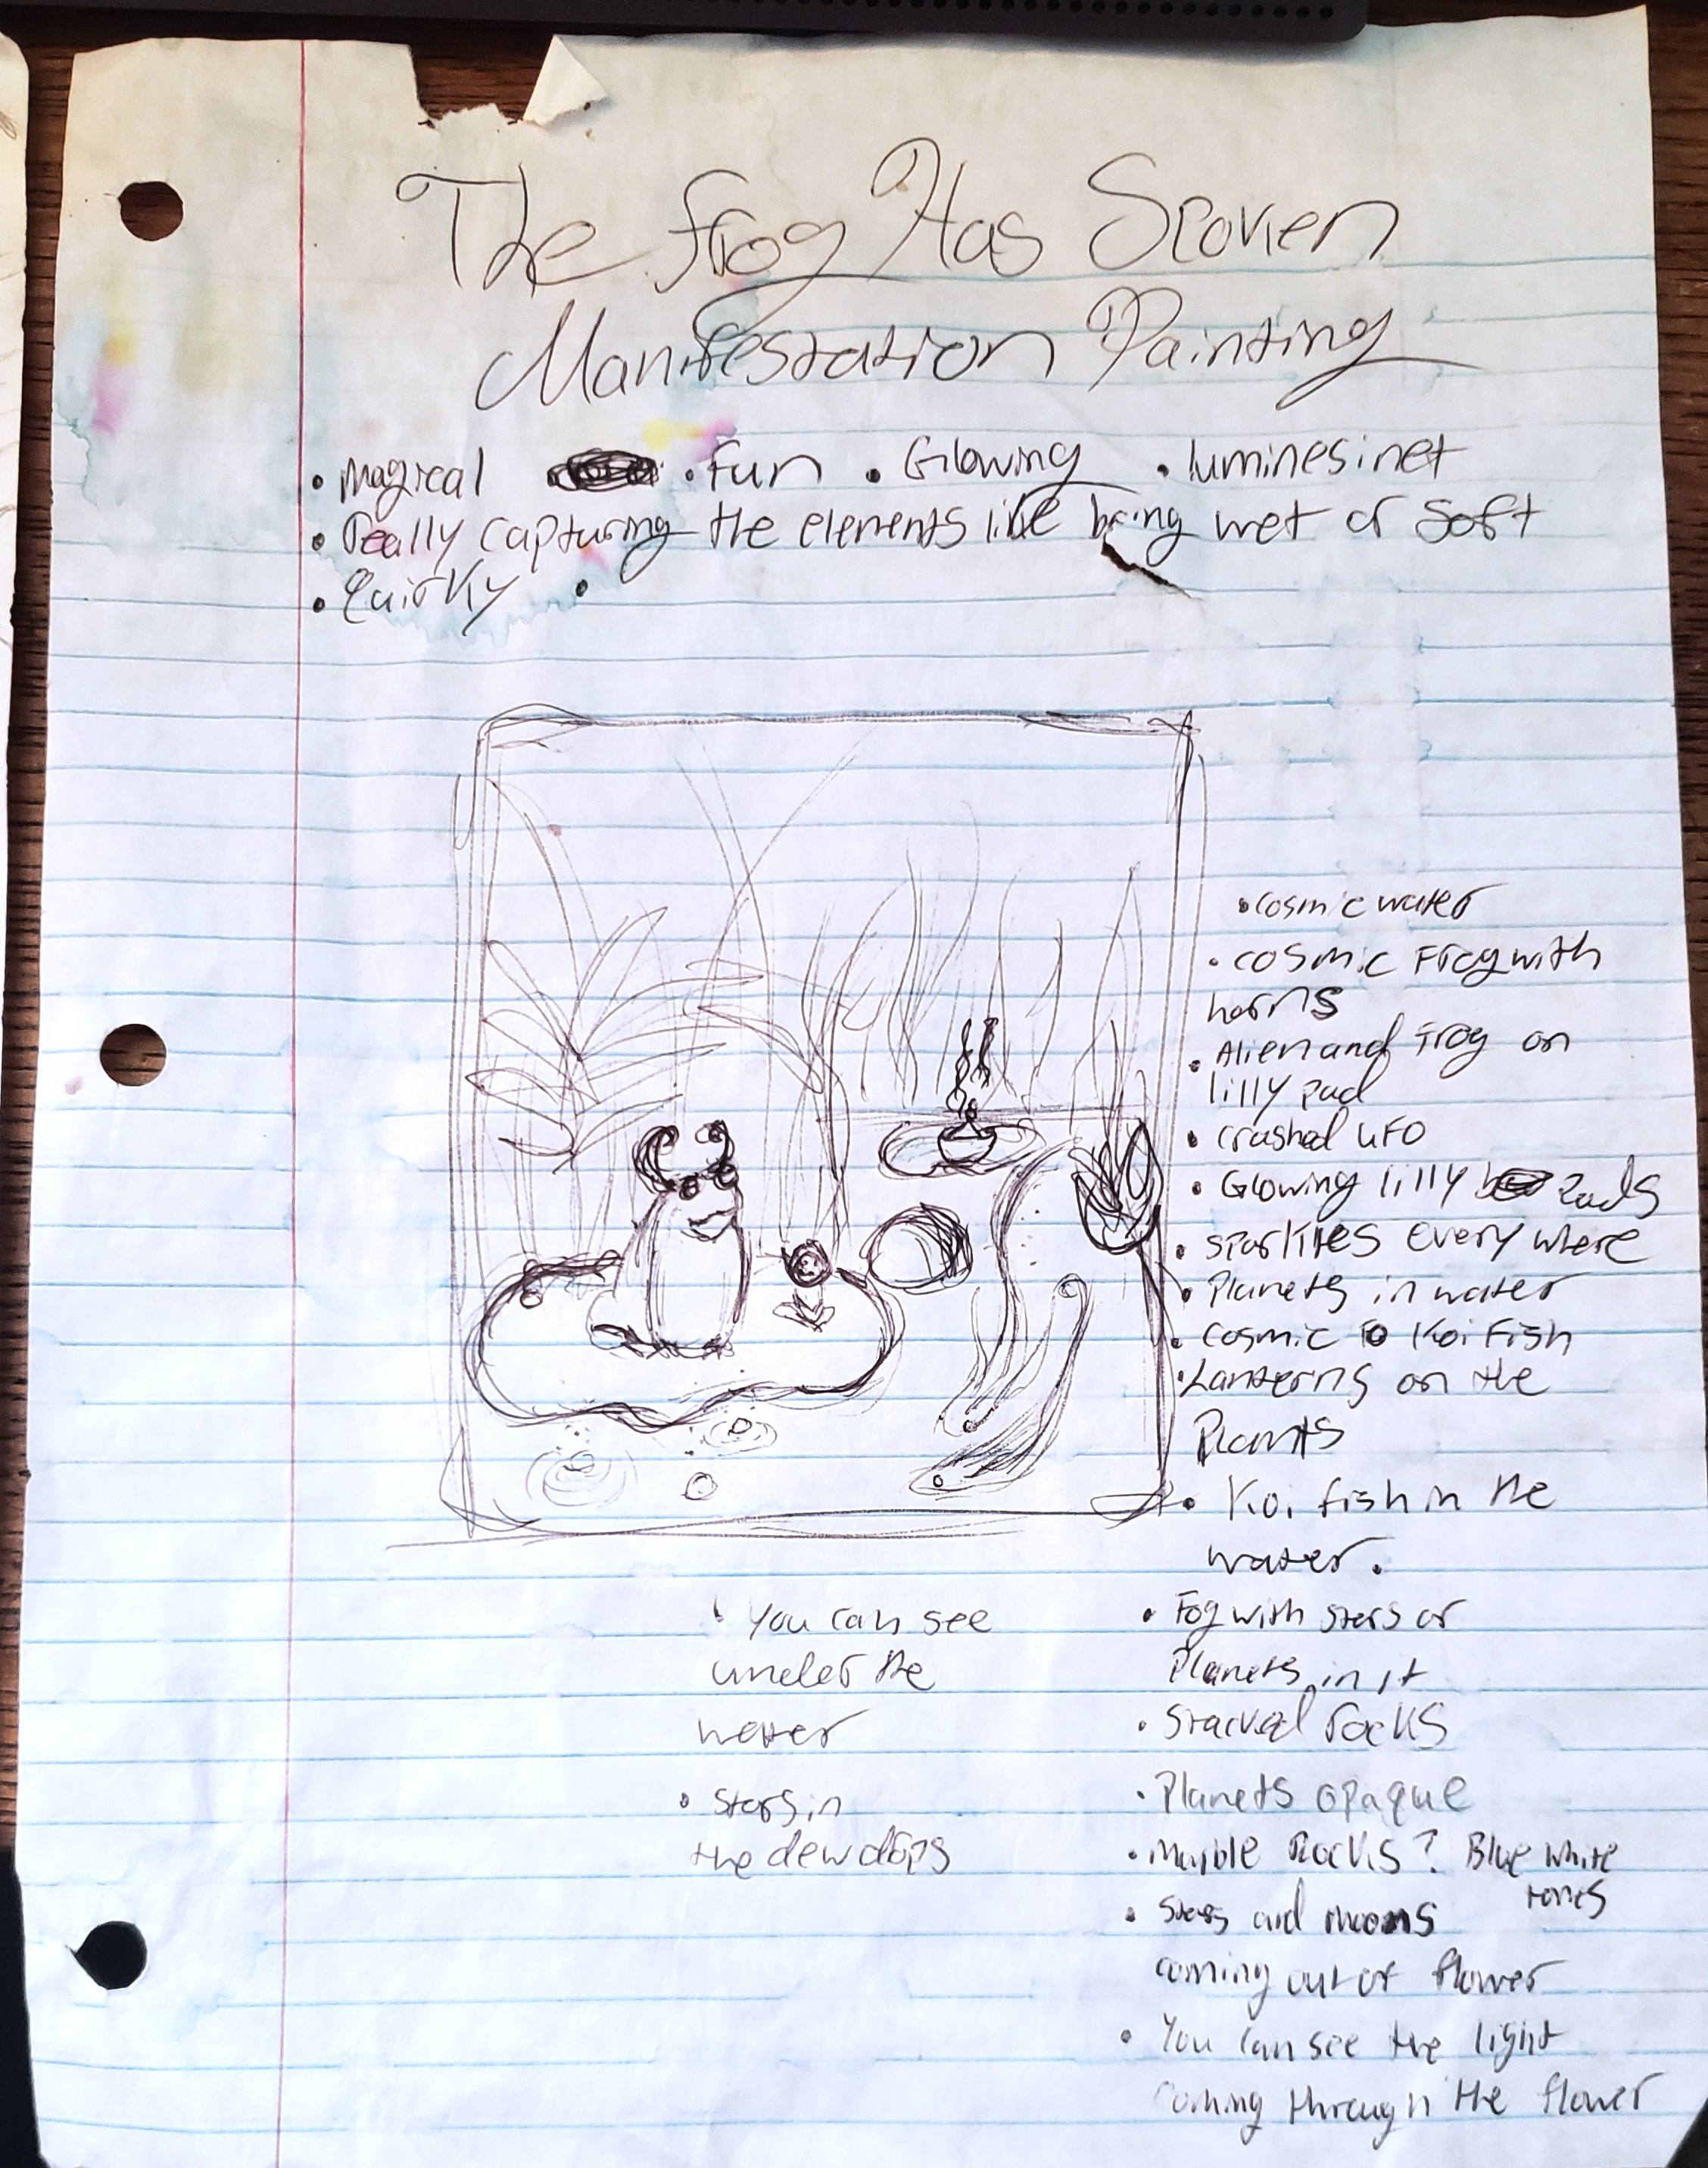 The Frog Has Spoken
Manifestation Painting
• Magical • Fun • Glowing • luminesinet
• Really capturing the elements like being wet or soft
• Quirky •
• cosmic water
• cosmic Frog with
horns
• Alien and frog on
lilly pad
• crashed UFO
• Glowing lilly Pads
• sparkles everywhere
• Planets in water
• cosmic Koi Fish
• Lanterns on the
Plants
• Koi fish in the
water.
• Fog with stars or
Planets in it
• Stacked rocks
• Planets opaque
• Marble Rocks? Blue white
tones
• Stars and moons
coming out of flower
• You can see the light
coming through the flower
• You can see
under the
water
• Stars in
the dewdrops